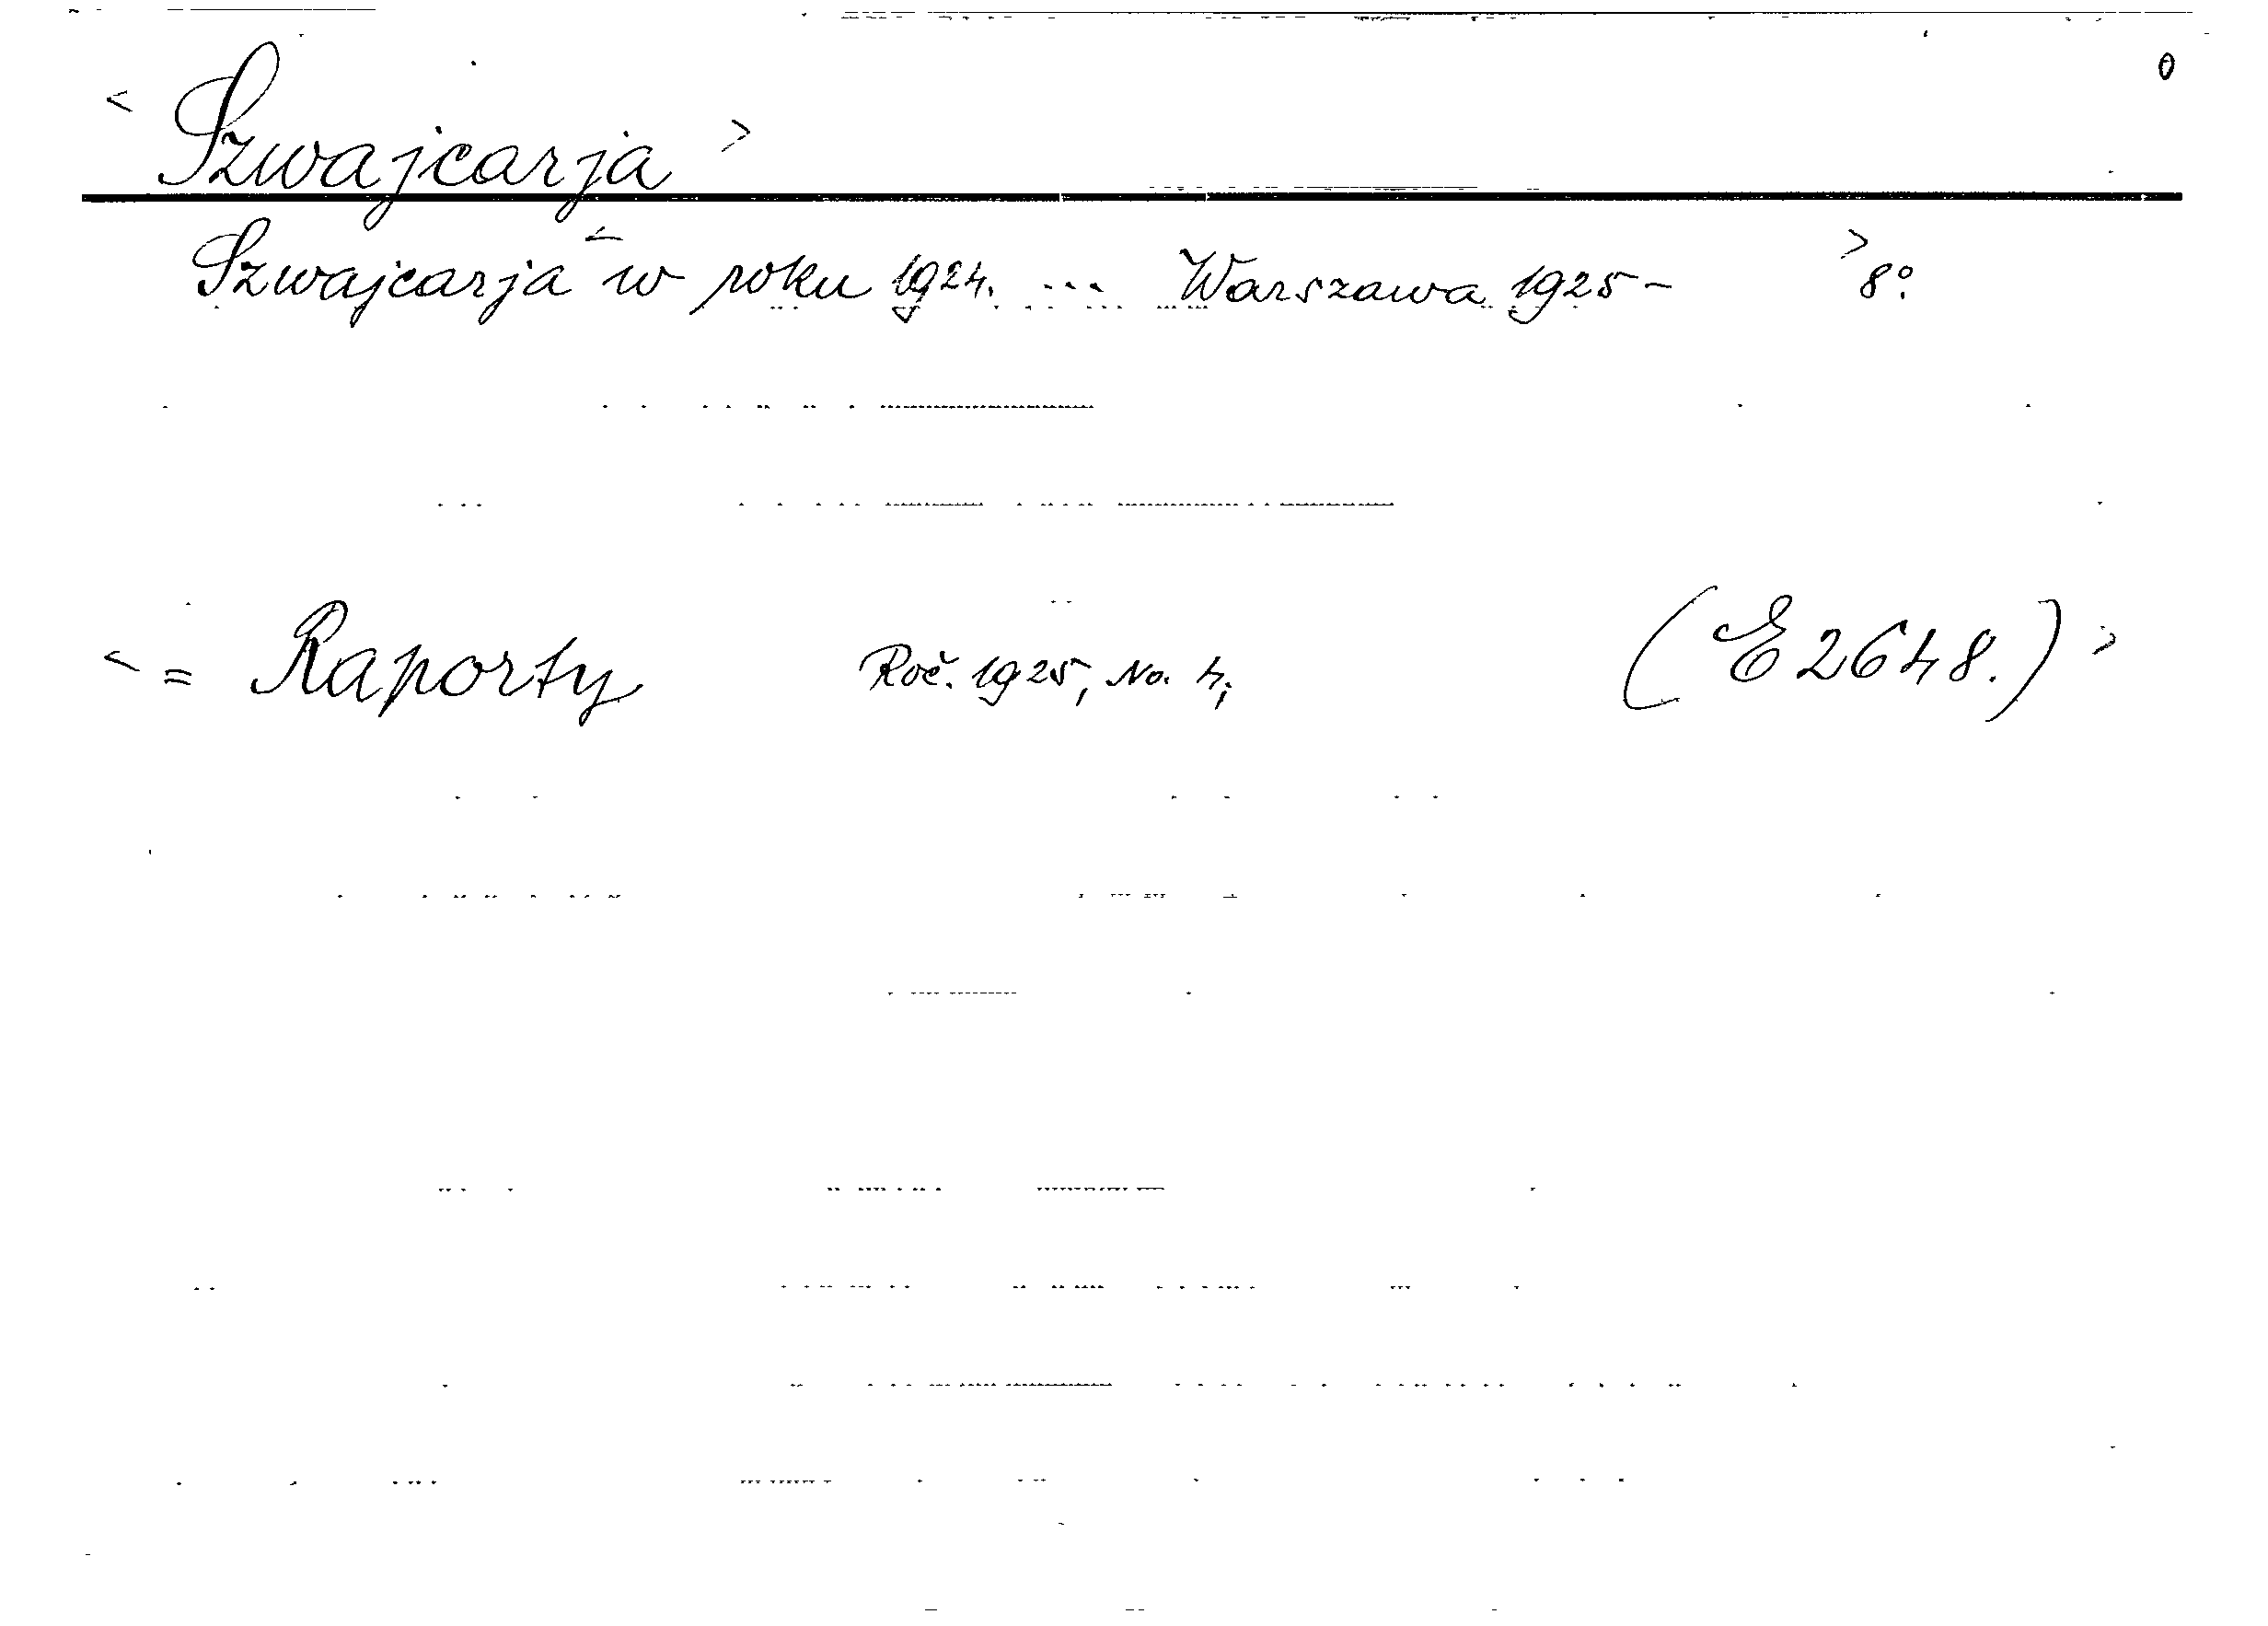 < Szwajcarja > 0
Szwajcarja < w roku 1924. ... Warszawa 1925 - > 8°.
< = Raporty Roč. 1925, No. 4; (E 2648.) >